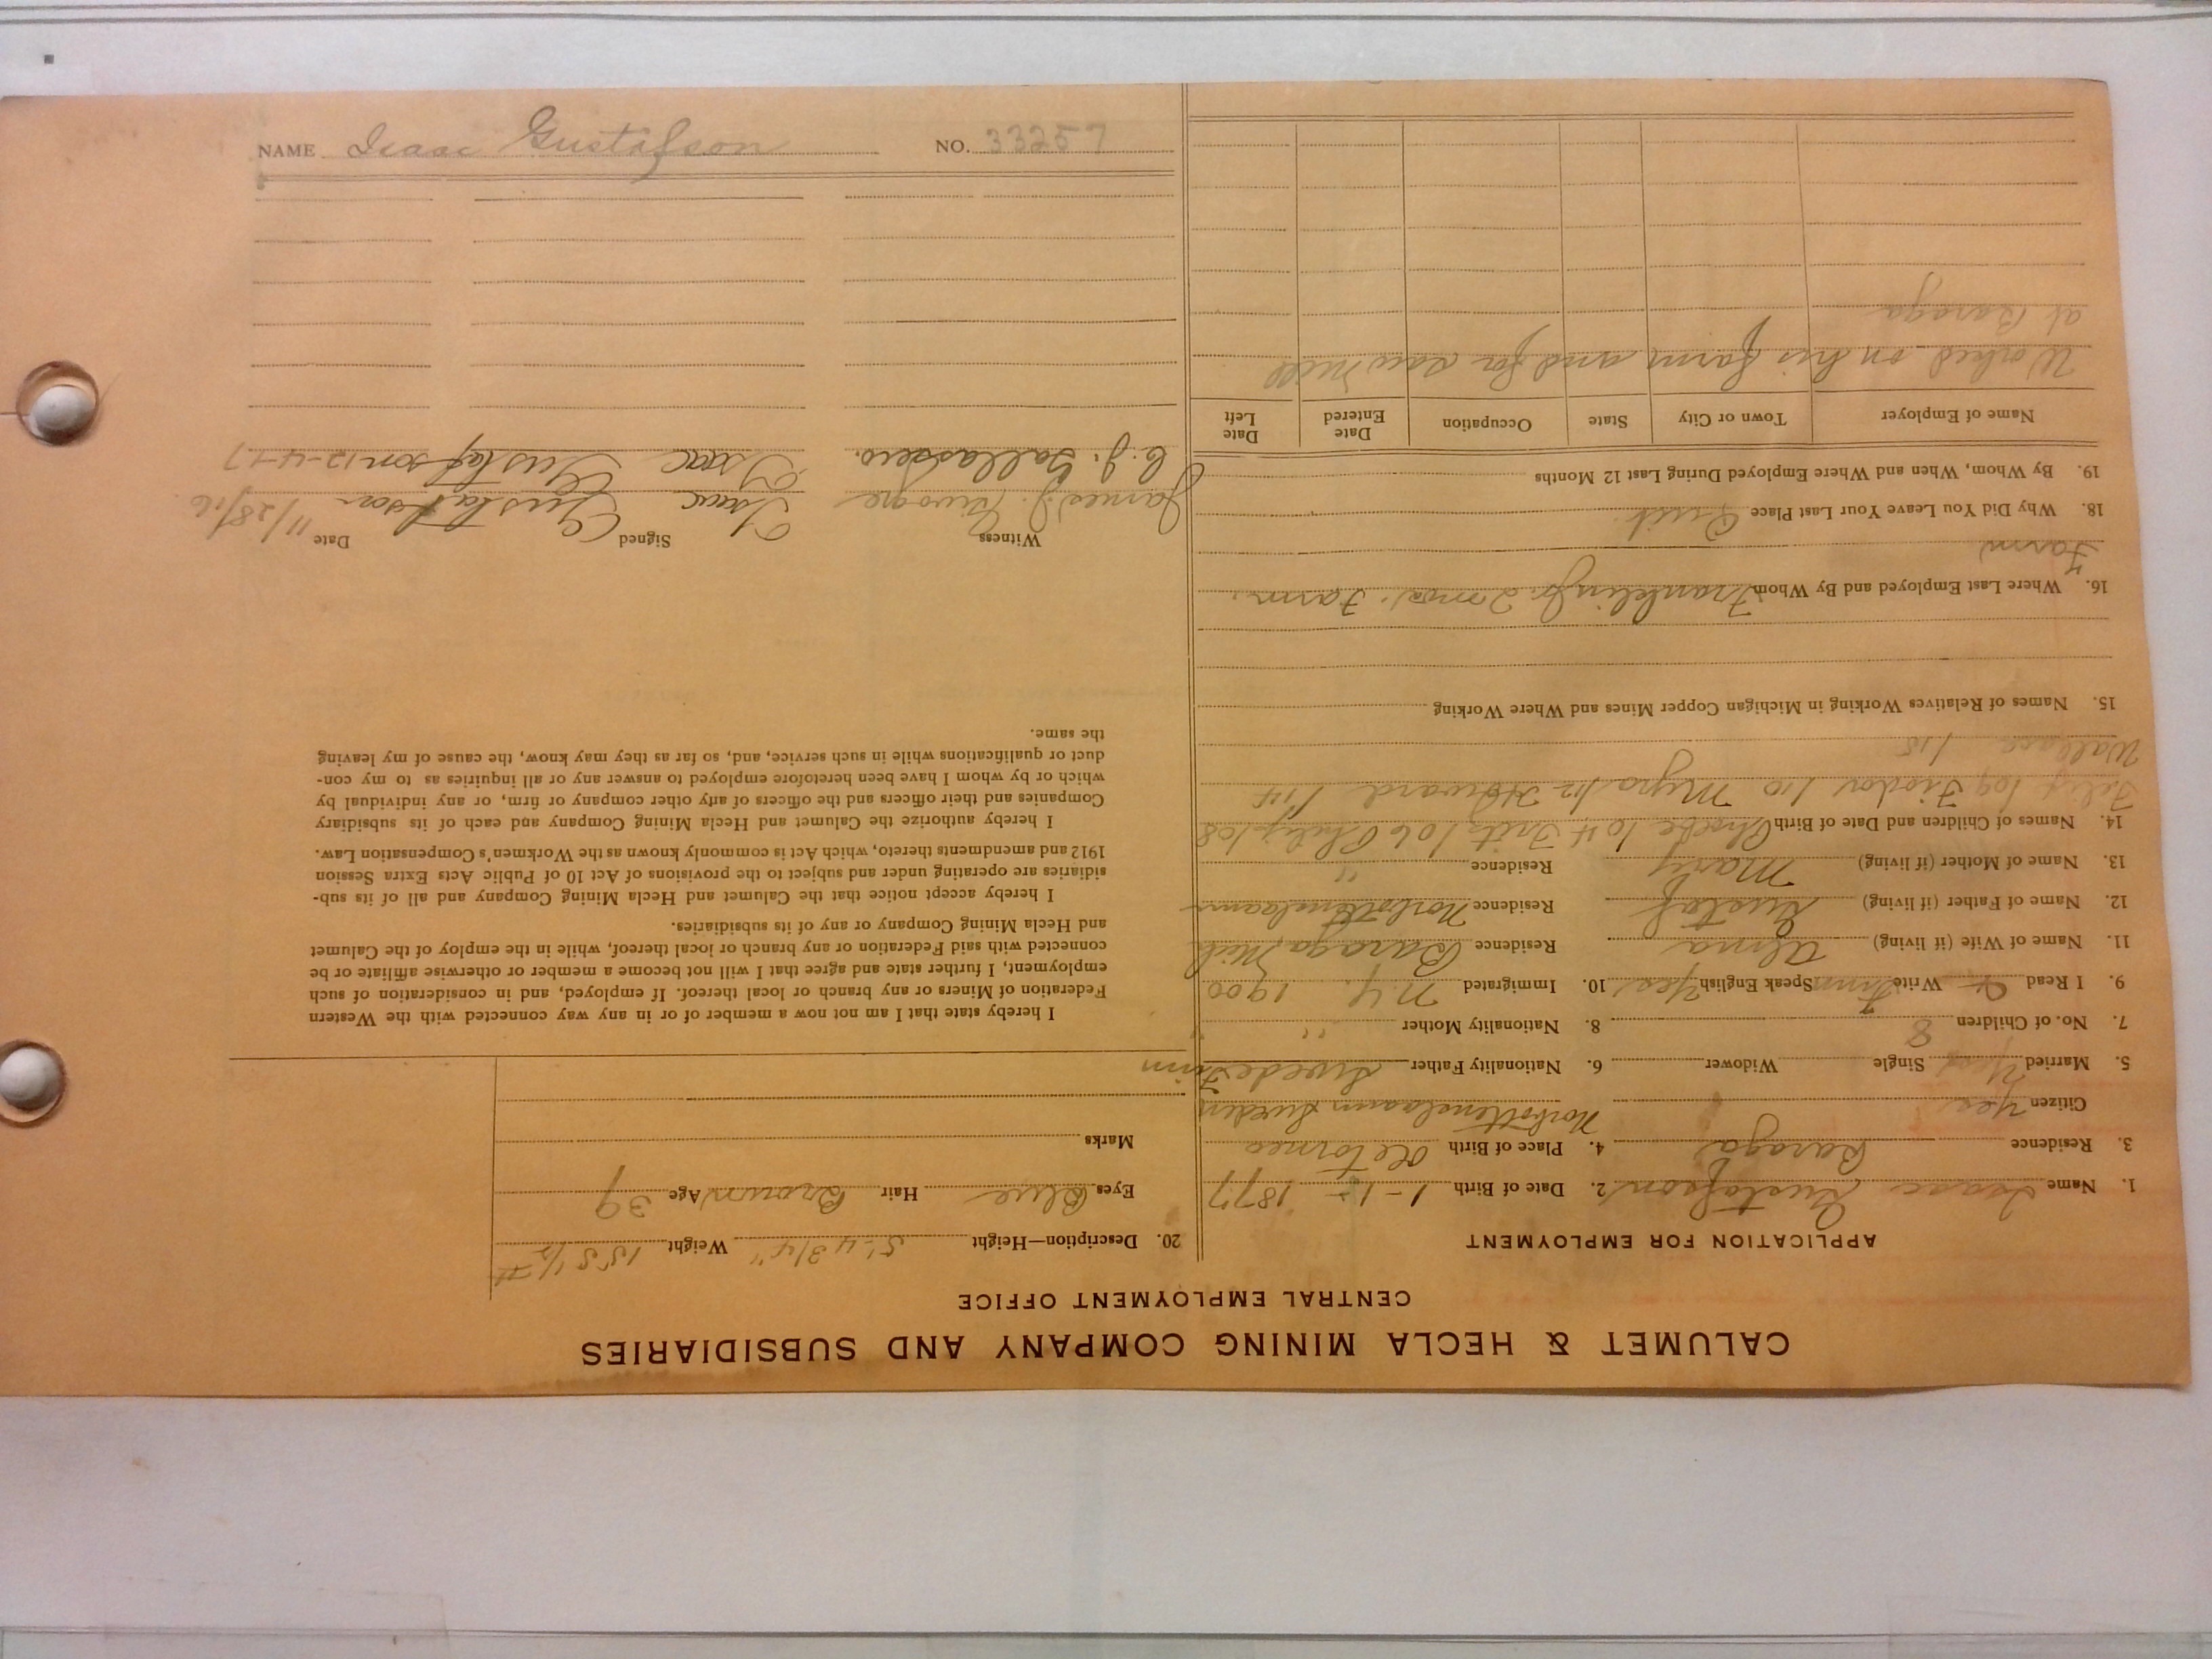 CALUMET & HECLA MINING COMPANY AND SUBSIDIARIES
CENTRAL EMPLOYMENT OFFICE
APPLICATION FOR EMPLOYMENT
1. Name Isaac Gustafson 2. Date of Birth 1-12-1877
3. Residence Baraga 4. Place of Birth
Citizen Yes Norbottenslaan Sweden
5. Married Yes Single Widower 6. Nationality Father Swede Finn
7. No. of Children 8 8. Nationality Mother " "
9. I Read Write Finn Speak English Yes 10. Immigrated N.Y. 1900
11. Name of Wife (if living) Alma Residence Baraga Mich
12. Name of Father (if living) Gustaf Residence Norbottenslaan
13. Name of Mother (if living) Mary Residence "
14. Names of Children and Date of Birth Phoebe /04 Frits /06 Philip /08
Felix /09 /10 Myra /12 Howard /14
Wallace /15
15. Names of Relatives Working in Michigan Copper Mines and Where Working
16. Where Last Employed and By Whom Franklin Jr. 2 mos. Farm.
Farm
18. Why Did You Leave Your Last Place Quit.
19. By Whom, When and Where Employed During Last 12 Months
Name of Employer Town or City State Occupation Date Entered Date Left
Worked on his farm and for saw mill
at Baraga
20. Description—Height 5'-4 3/4" Weight 155 1/2 #
Eyes Blue Hair Brown Age 39
Marks
I hereby state that I am not now a member of or in any way connected with the Western
Federation of Miners or any branch or local thereof. If employed, and in consideration of such
employment, I further state and agree that I will not become a member or otherwise affiliate or be
connected with said Federation or any branch or local thereof, while in the employ of the Calumet
and Hecla Mining Company or any of its subsidiaries.
I hereby accept notice that the Calumet and Hecla Mining Company and all of its sub-
sidiaries are operating under and subject to the provisions of Act 10 of Public Acts Extra Session
1912 and amendments thereto, which Act is commonly known as the Workmen's Compensation Law.
I hereby authorize the Calumet and Hecla Mining Company and each of its subsidiary
Companies and their officers and the officers of any other company or firm, or any individual by
which or by whom I have been heretofore employed to answer any or all inquiries as to my con-
duct or qualifications while in such service, and, so far as they may know, the cause of my leaving
the same.
Witness Signed Date
James J. Isaac Gustafson 11/28/16
C. J. Isaac Gustafson 12-4-17
NAME Isaac Gustafson NO. 33257